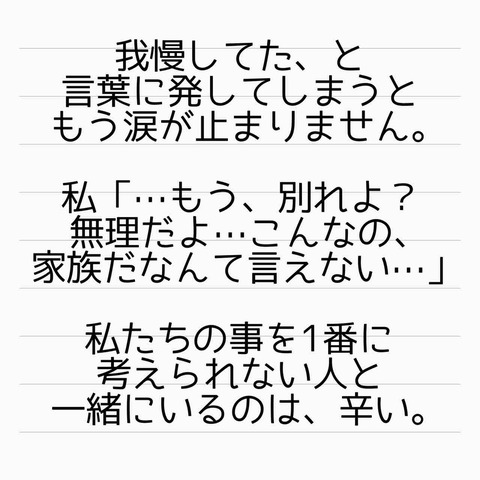 我慢してた、と
言葉に発してしまうと
もう涙が止まりません。
私「…もう、別れよ？
無理だよ…こんなの、
家族だなんて言えない…」
私たちの事を1番に
考えられない人と
一緒にいるのは、辛い。